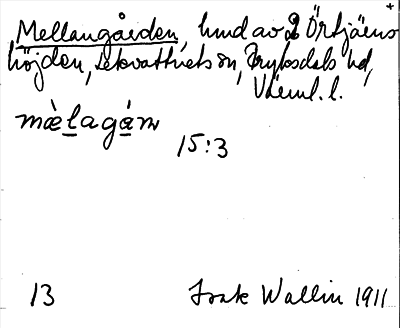 +
Mellangården, hmd av 2 Örtjärns
höjden, Lekvattnets sn, Fryksdals hd,
Värml. l.
mælagáṇ
15:3
13
Isak Wallin 1911